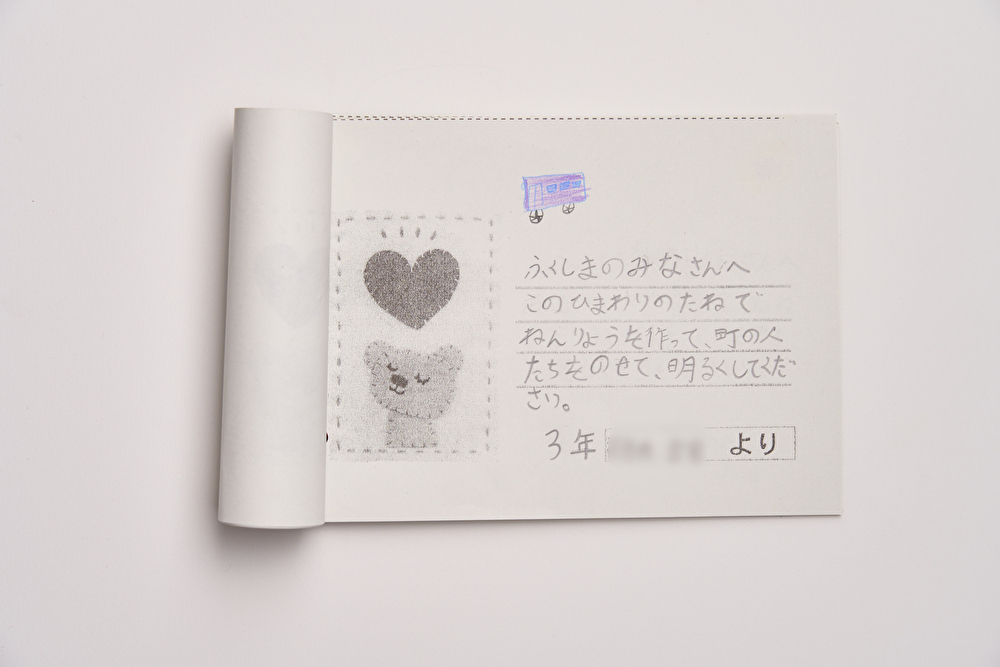 ふくしまのみなさんへ
このひまわりのたねで
ねんりょうを作って、町の人
たちをのせて、明るくしてくだ
さい。
3年 より